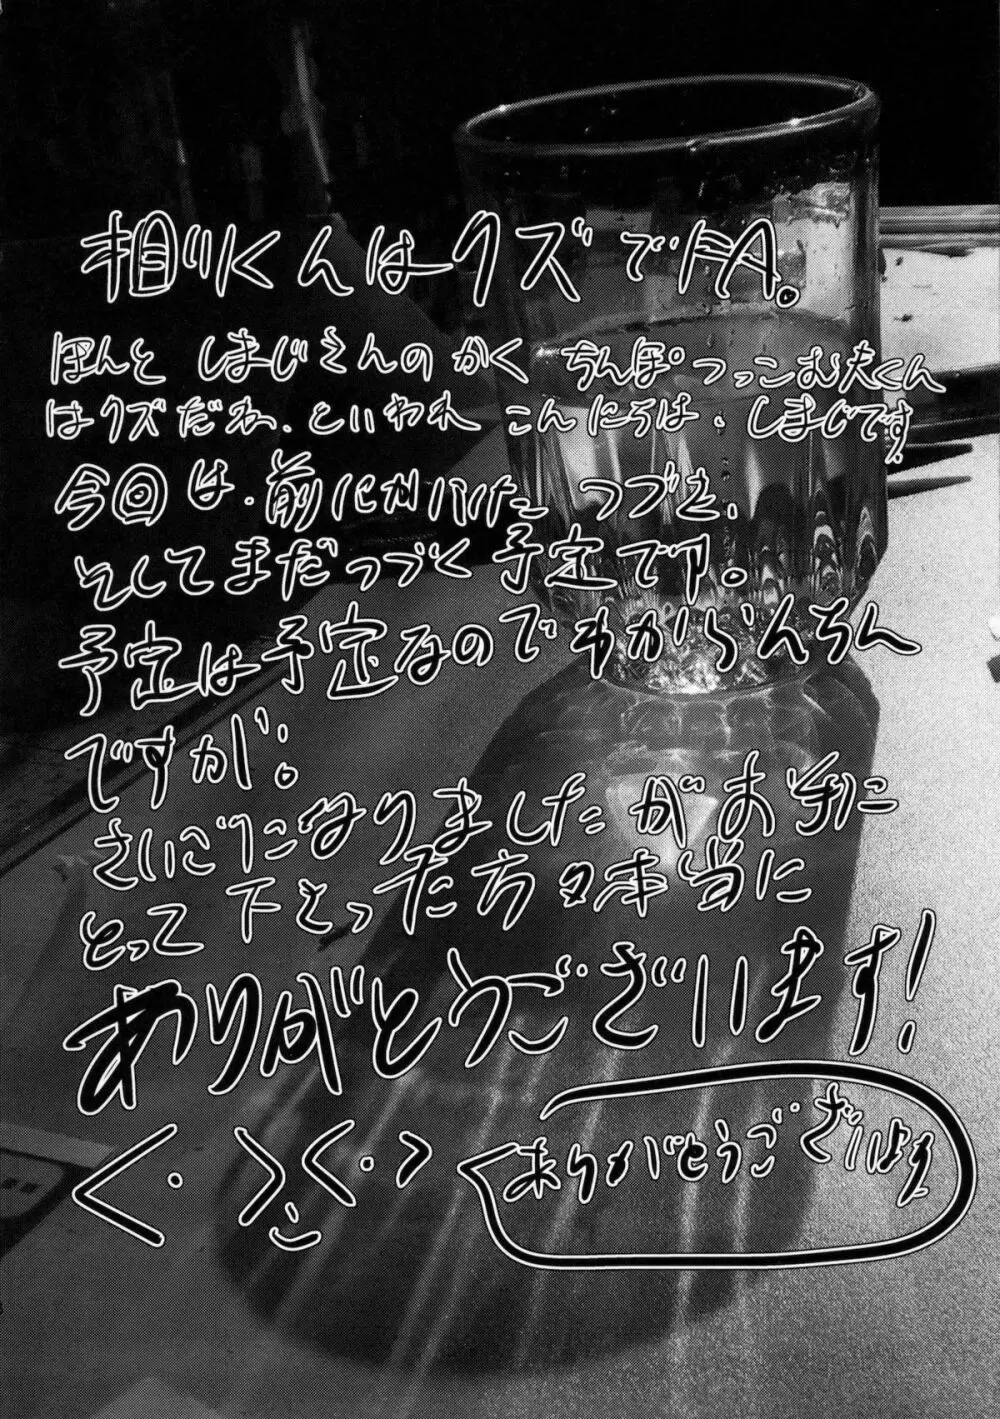 相川くんはクズでFA。
ほんと しまじさんのかく ちんぽつっこむ夫くん
はクズだね、といわれ こんにちは、しまじです。
今回は、前にかいた つづき、
そしてまだつづく予定です。
予定は予定なのでわからんちん
ですが。
さいごになりましたがお手に
とって下さった方々本当に
ありがとうございます!
<・>し<・>
ありがとうございます